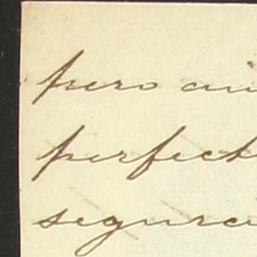 pero
perfect
segura